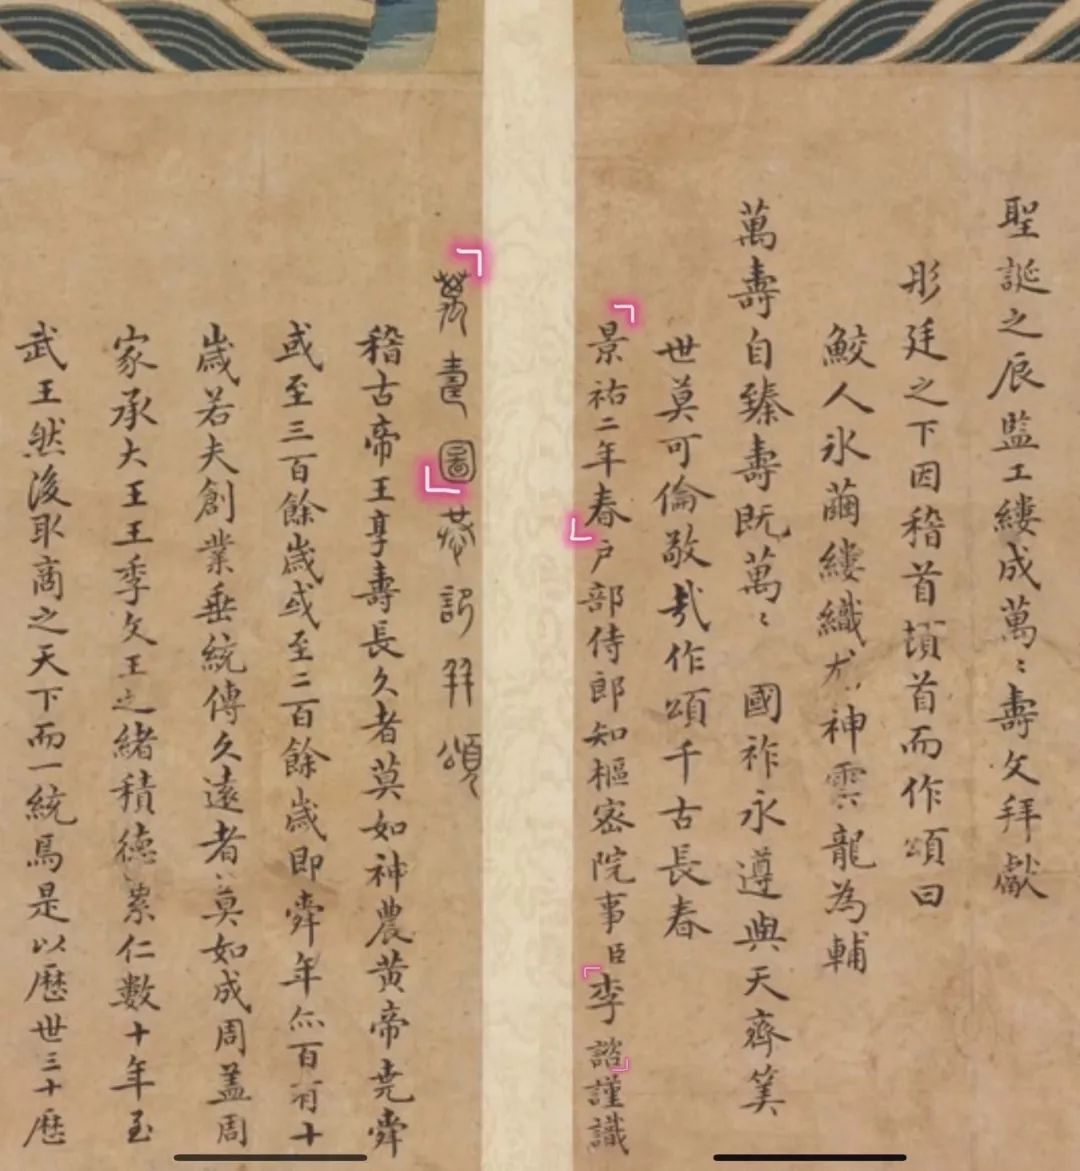 萬壽圖恭記拜頌
稽古帝王享壽長久者莫如神農黃帝堯舜
或至三百餘歲或至二百餘歲即舜年亦百有十
歲若夫創業垂統傳久遠者莫如成周蓋周
家承大王王季文王之緒積德累仁數十年至
武王然後取商之天下而一統焉是以歷世三十歷
聖誕之辰監工縷成萬〻壽文拜獻
彤廷之下因稽首頓首而作頌曰
鮫人氷繭縷織尤神雲龍為輔
萬壽自臻壽既萬〻 國祚永遵與天齊筭
世莫可倫敬哉作頌千古長春
景祐二年春戶部侍郎知樞密院事臣李諮謹識